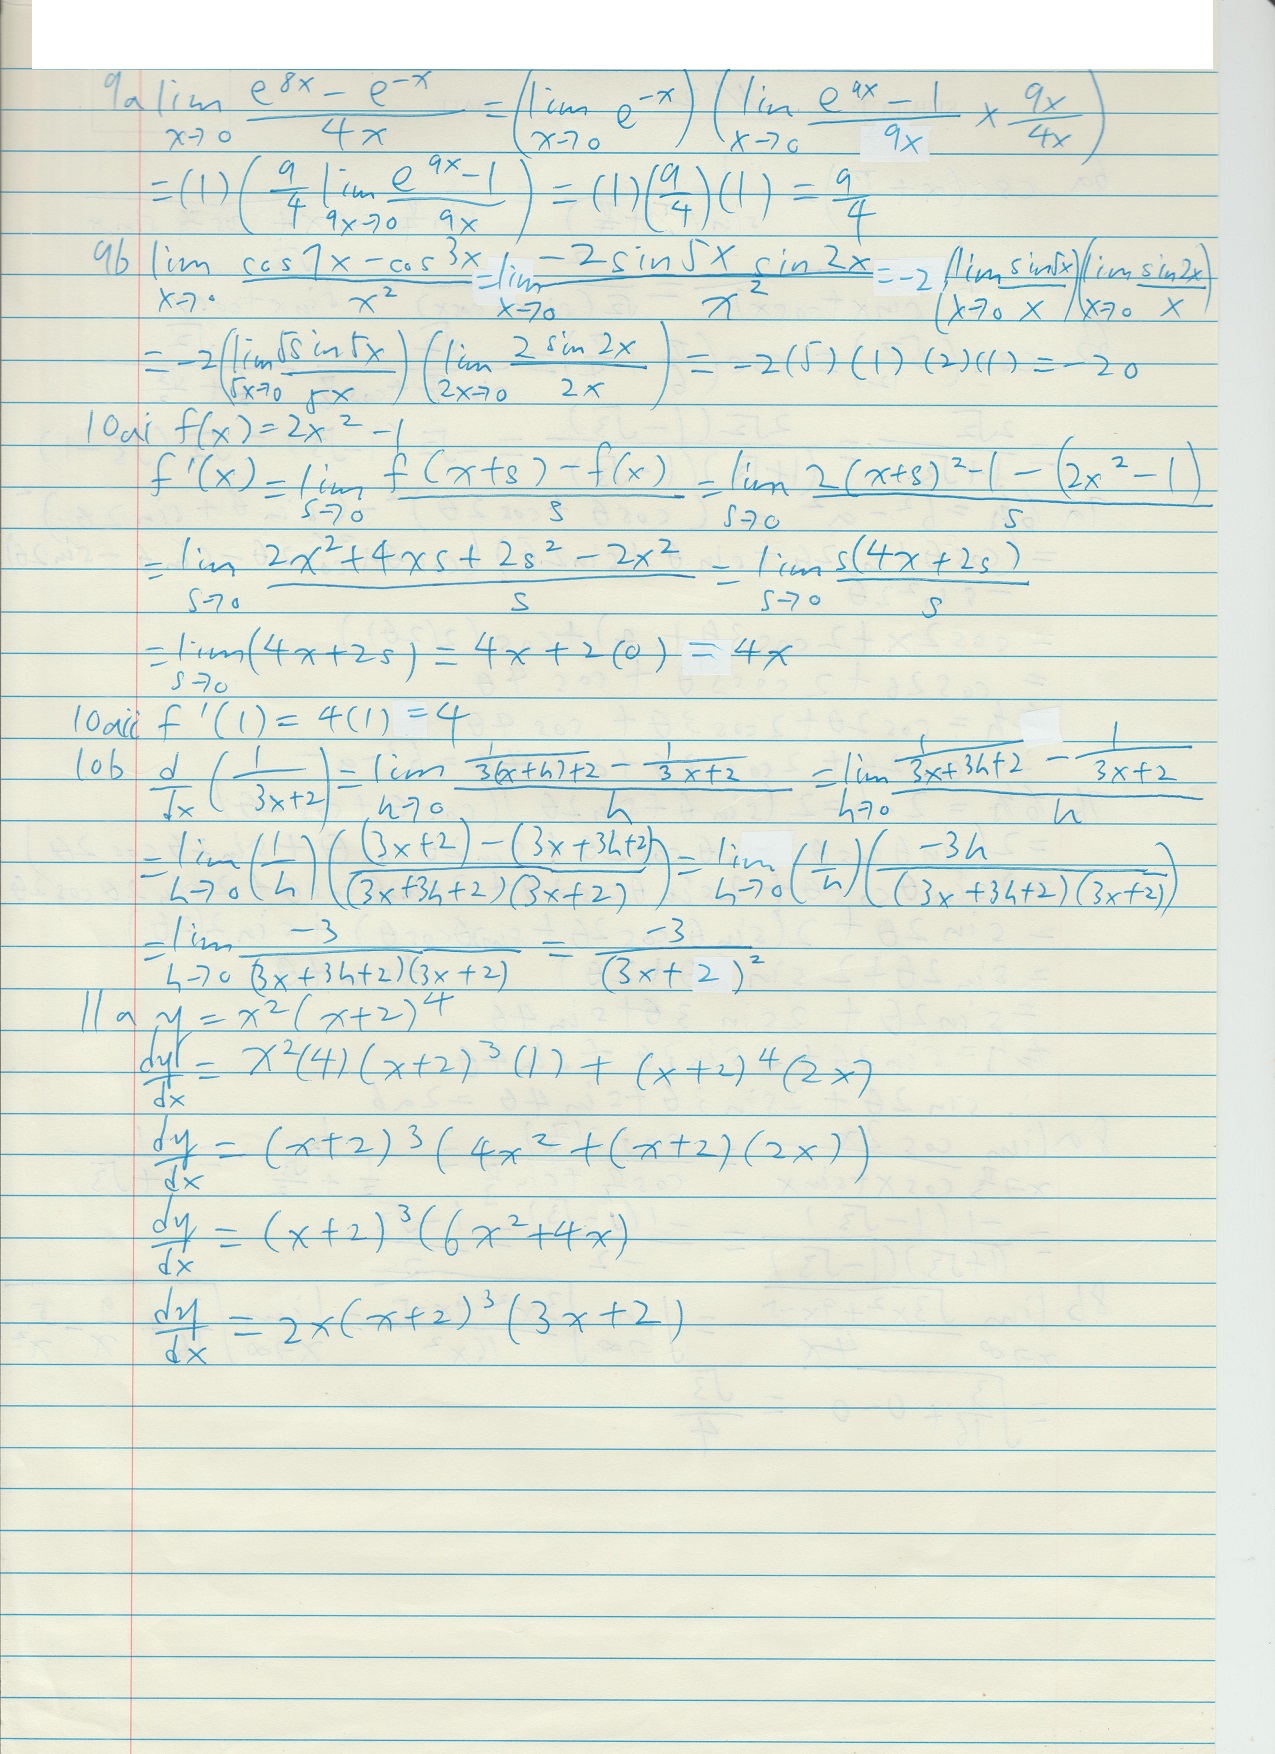 9a lim x→0 (e^{8x} − e^{−x})/(4x) = (lim x→0 e^{−x}) (lim x→0 (e^{9x} − 1)/(9x) × (9x)/(4x))
= (1) (9/4 lim 9x→0 (e^{9x} − 1)/(9x)) = (1) (9/4) (1) = 9/4
9b lim x→0 (cos 7x − cos 3x)/x² = lim x→0 (−2 sin 5x sin 2x)/x² = −2 (lim x→0 (sin 5x)/x) (lim x→0 (sin 2x)/x)
= −2 (lim 5x→0 (5 sin 5x)/(5x)) (lim 2x→0 (2 sin 2x)/(2x)) = −2 (5) (1) (2) (1) = −20
10ai f(x) = 2x² − 1
f'(x) = lim s→0 (f(x+s) − f(x))/s = lim s→0 (2(x+s)² − 1 − (2x² − 1))/s
= lim s→0 (2x² + 4xs + 2s² − 2x²)/s = lim s→0 (s(4x + 2s))/s
= lim s→0 (4x + 2s) = 4x + 2(0) = 4x
10aii f'(1) = 4(1) = 4
10b d/dx (1/(3x+2)) = lim h→0 (1/(3(x+h)+2) − 1/(3x+2))/h = lim h→0 (1/(3x+3h+2) − 1/(3x+2))/h
= lim h→0 (1/h) (((3x+2) − (3x+3h+2))/((3x+3h+2)(3x+2))) = lim h→0 (1/h) (−3h/((3x+3h+2)(3x+2)))
= lim h→0 −3/((3x+3h+2)(3x+2)) = −3/(3x+2)²
11a y = x²(x+2)⁴
dy/dx = x²(4)(x+2)³(1) + (x+2)⁴(2x)
dy/dx = (x+2)³(4x² + (x+2)(2x))
dy/dx = (x+2)³(6x² + 4x)
dy/dx = 2x(x+2)³(3x+2)